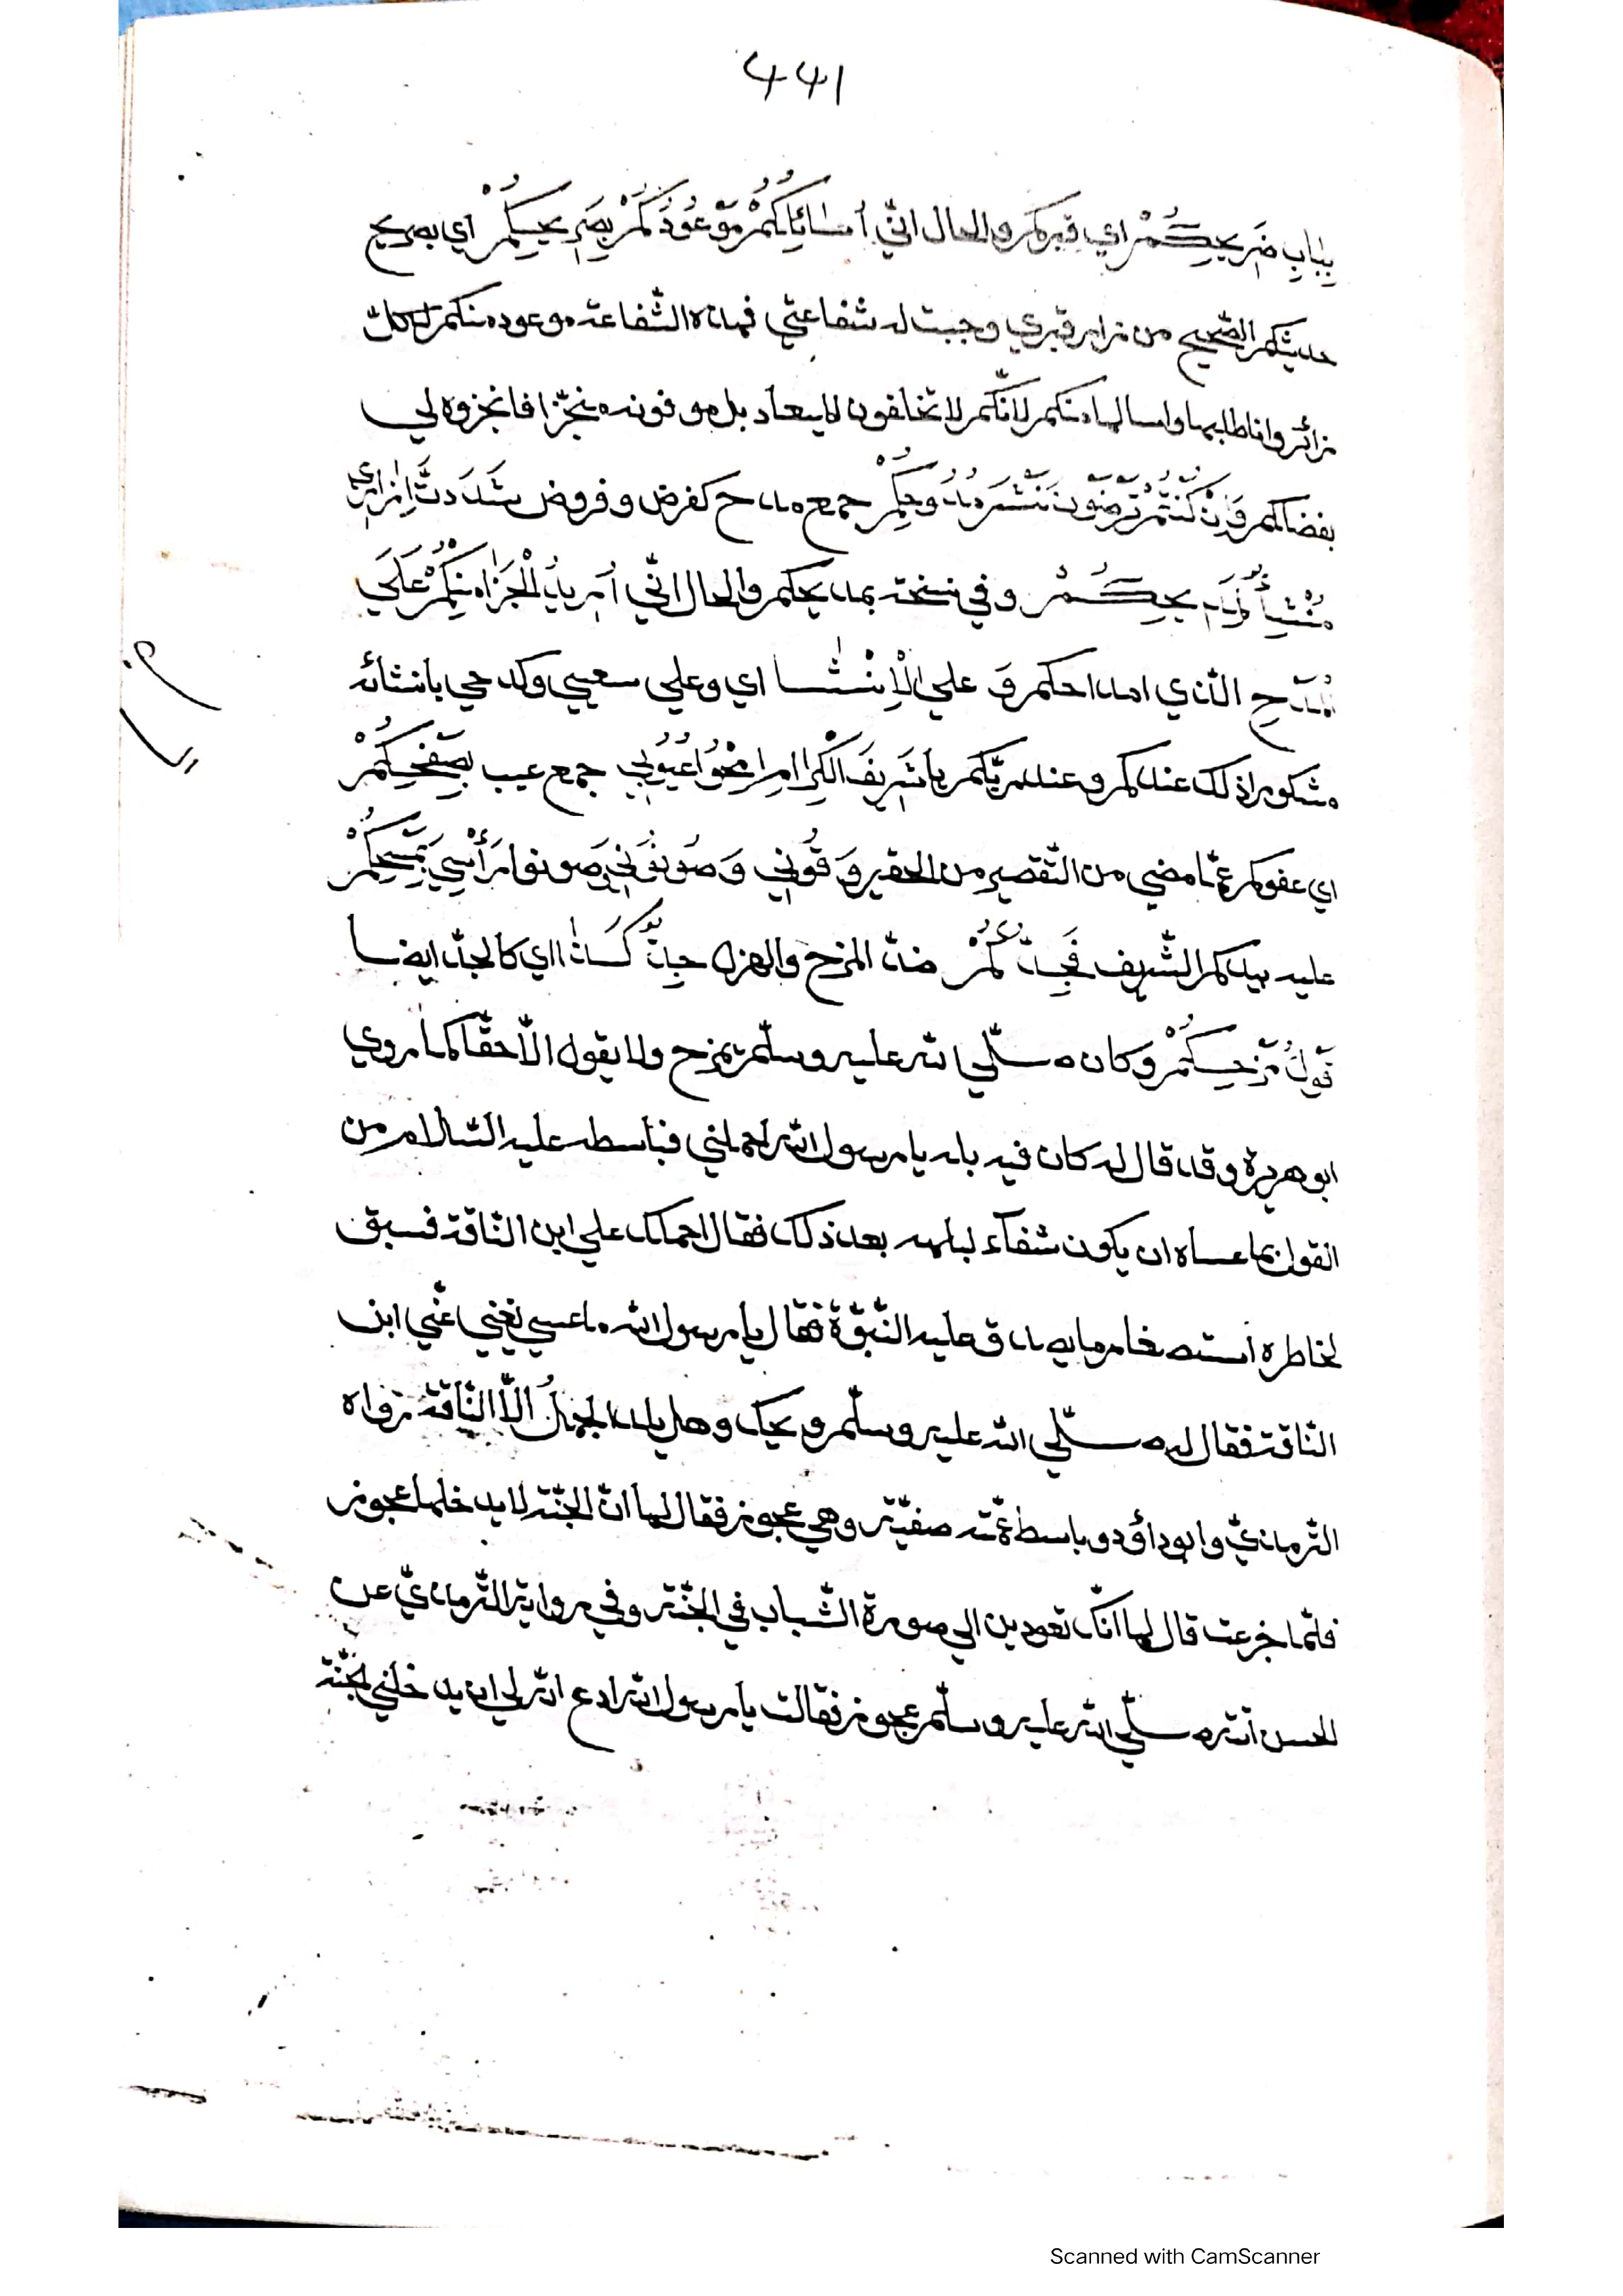 441
بِبَابِ ضَرِيحِكُمْ اي قبركم والحال انّي أُسَائِلُكُمْ مَوْعُوْدَكُمْ بِصَرِيحِكُمْ اي بصريح
حديثكم الصّحيح من زار قبري وجبت له شفاعتي فهذه الشّفاعة موعوده منكم لكلّ
زائر وانا طالبها واسالها منكم لانّكم لا تخلفون الميعاد بل موفونه منجّزا فانجزوه لي
بفضلكم وَاِنْ كُنْتُمْ تَرْضَوْنَ نَنْشُرُ مُدُوحَكُمْ جمع مدح كفرض وفروض شَدَدتُّ اِزَارِي
مُنْشِأً لِمَدِيحِكُمْ وفي نسخة بمديحكم والحال انّي أُرِيدُ الْجَزَا مِنْكُمْ عَلَي
الْمَدْحِ الّذي امداحكم وَ علي الْاِنْشَا اي وعلي سعيي وكدحي بانشائه
مشكورا ذلك عندكم وعند ربّكم يا شَرِيفَ الْكِرَامِ امْحُوا عُيُوبِي جمع عيب بِصَفْحِكُمْ
اي عفوكم عمّا مضي من التّقصير من الحقير وَ قُونِي وَ صُونُونِي صونوا رَأْسِي بِمَسْحِكُمْ
عليه بيدكم الشّريف فَجِدُّكُمْ ضدّ المزح والهزل جِدٌّ كَذَا اي كالجدّ ايضا
قَوْلُ مَزْحِكُمْ وكان صلّي الله عليه وسلّم يمزح ولا يقول الّا حقّا كما روي
ابو هريرة وقد قال له كان فيه بله يا رسول الله احملني فباسطه عليه السّلام من
القول بما عساه ان يكون شفآء لبلهه بعد ذلك فقال احملك علي ابن النّاقة فسبق
لخاطره استصغار ما يصدق عليه النّبوّة فقال يا رسول الله ما عسي يغني عنّي ابن
النّاقة فقال له صلّي الله عليه وسلّم ويحك وهل يلد الجملُ الّا النّاقة رواه
التّرمذيّ وابو داؤد وباسط عمّته صفيّة وهي عجوز فقال لها انّ الجنّة لا يدخلها عجوز
فلمّا جزعت قال لها انّك تعودين الي صورة الشّباب في الجنّة وفي رواية التّرمذيّ عن
الحسن اتته صلّي الله عليه وسلّم عجوز فقالت يا رسول الله ادع الله لي ان يدخلني الجنّة
Scanned with CamScanner